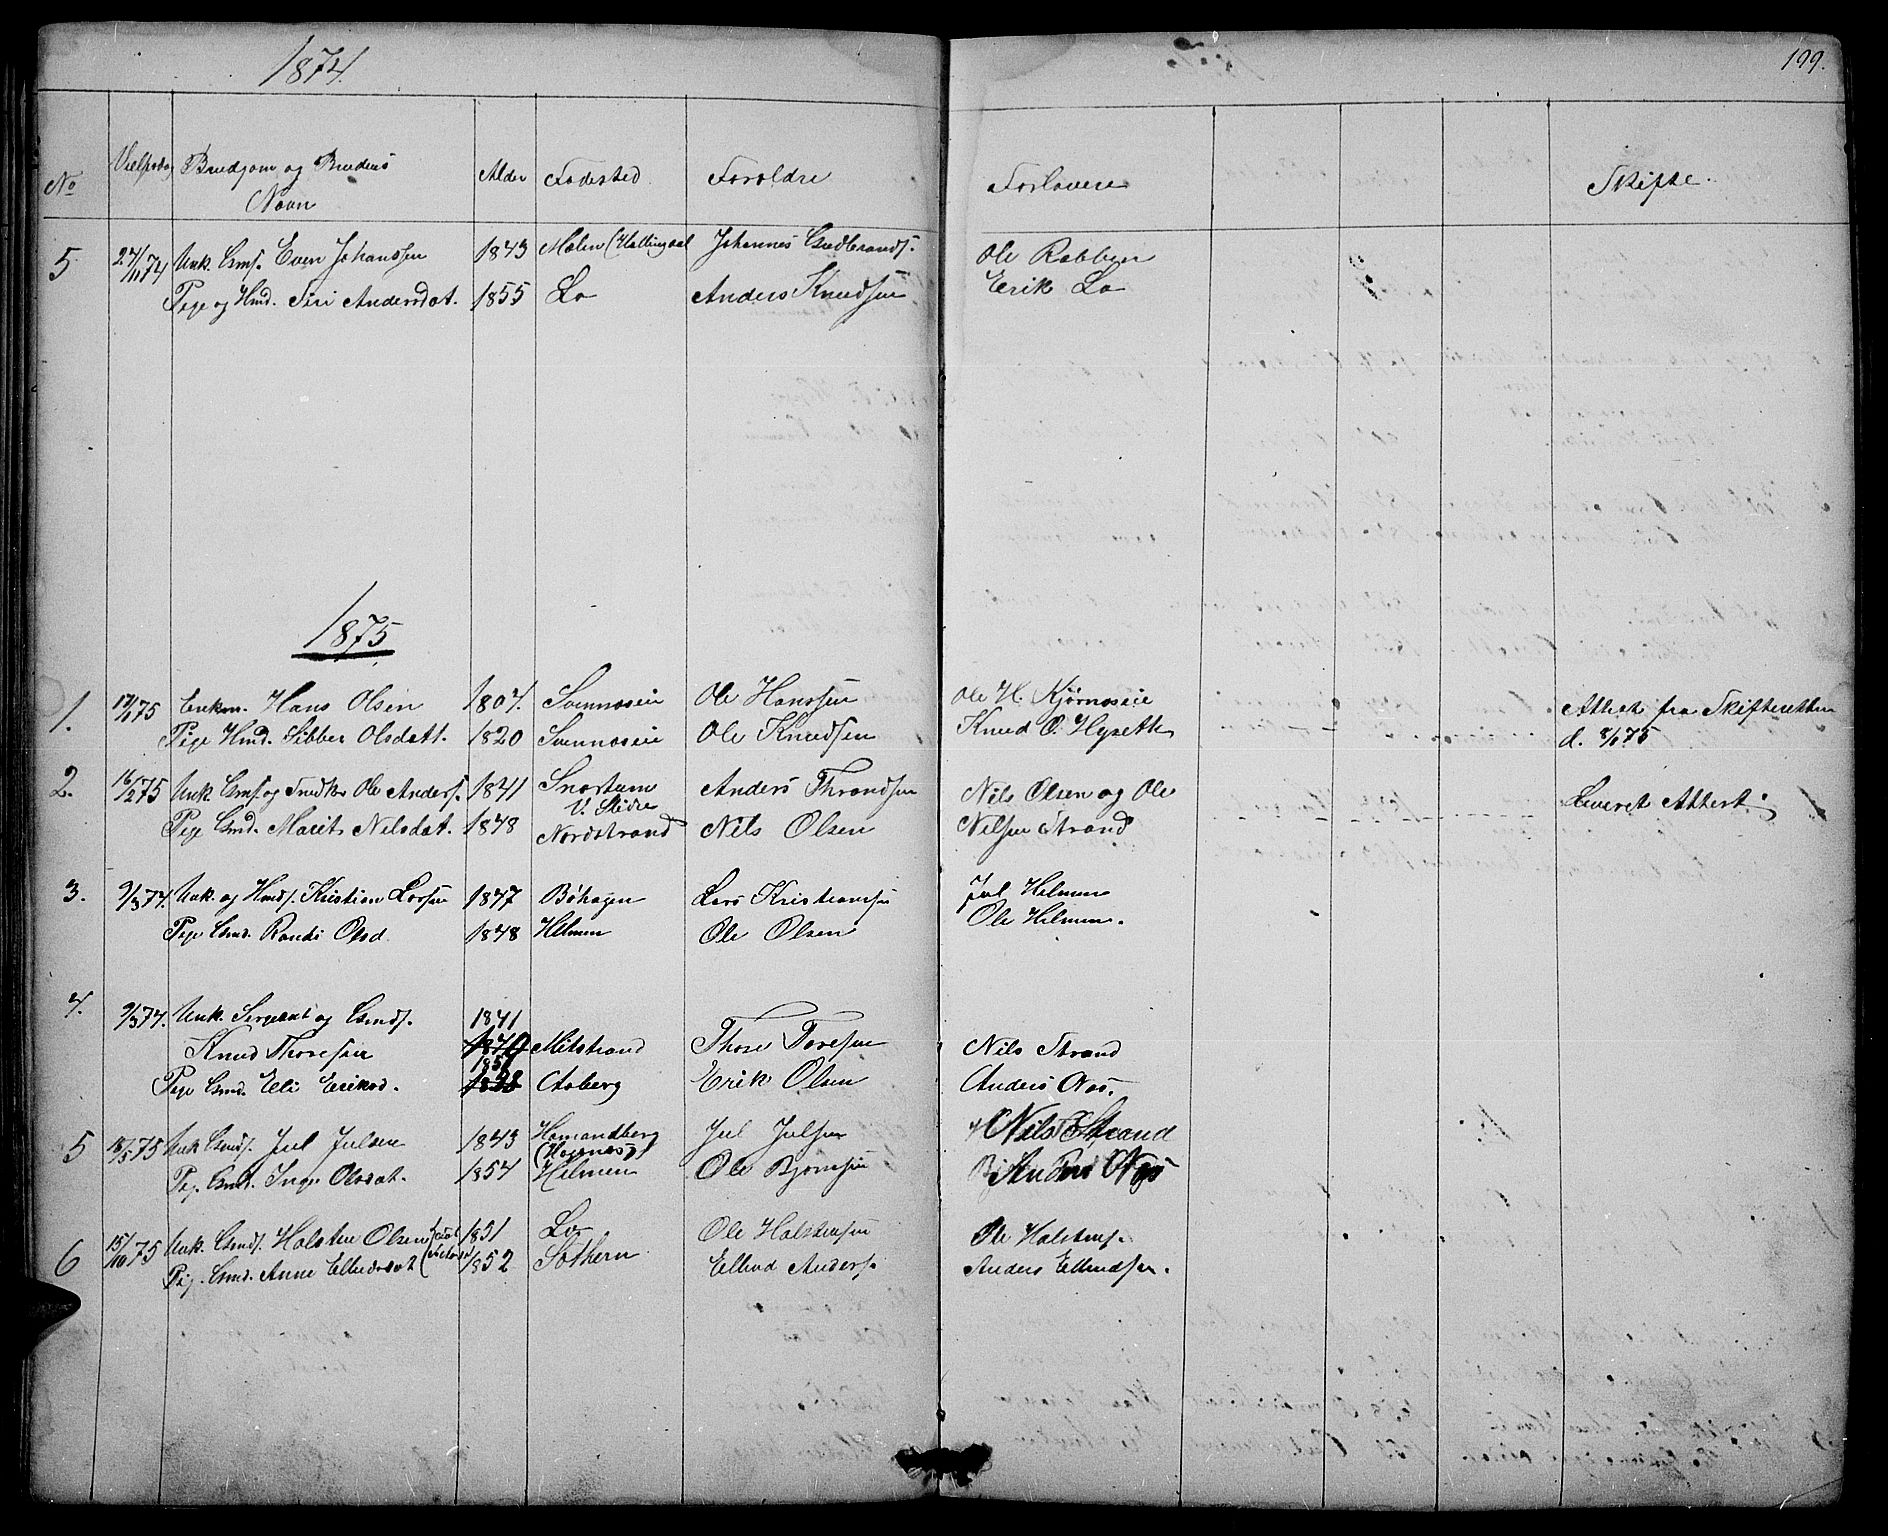 1874.
199.
No
Vielsesdag
Brudgom og Brudens
Navn
Alder
Fødested
Forældre
Forlovere
Skifte.
5
24/11 74
Unk. Gmf. Even Johanssen
1843
Mælen (Hallingdal
Johannes Gudbrands.
Ole Robben
Pige og Hmd. Siri Andersdat.
1855
Lo
Anders Knudsen
Erik Lo
1875
1.
17/1 75
Enkem. Hans Olsen
1804.
Svennæseie
Ole Hanssen
Ole H. Kjørnæseie
Attest fra Skifteretten
Pige Hmd. Sibber Olsdatt.
1820
Svennæseie
Ole Knudsen
Knud O. Hyseth
d. 8/1 75
2.
16/2 75
Unk. Gmf. og Snedker Ole Anders.
1841
Snortum
V. Slidre
Anders Throndsen
Nils Olsen og Ole
Leveret Attest.
Pige Gmd. Marit Nilsdat.
1848
Nordstrand
Nils Olsen
Nilsen Strand
3.
9/3 74.
Unk. og Hmds. Kristian Larsen
1847
Bøhagen
Lars Kristiansen
Jul Hilmen
Pige Gmd. Randi Olsd.
1848
Hilmen
Ole Olsen
Ole Hilmen.
4.
9/3 74.
Unk. Sergeant og Gmds.
1841
Knud Thoresen
Mitstrand
Thore Toresen
Nils Strand
1851
Pige Gmd. Eli Eriksd.
Aaberg
Erik Olsen
Anders Næs.
5
18/5 75
Unk. Gmds. Jul Julsen
1843
Homandberg
Jul Julsen
Nils Strand
Pig. Gmd. Inge Olsdat.
1854
Hilmen
Ole Bjørnsen
Anders Næs
6
15/10 75
Unk. Gmds. Halsten Olsen
1851
Lo
Ole Halstensen
Ole Halstens.
Pig. Gmd. Anne Ellendsdat
1852
Søthern
Ellend Anders.
Anders Ellendsen.